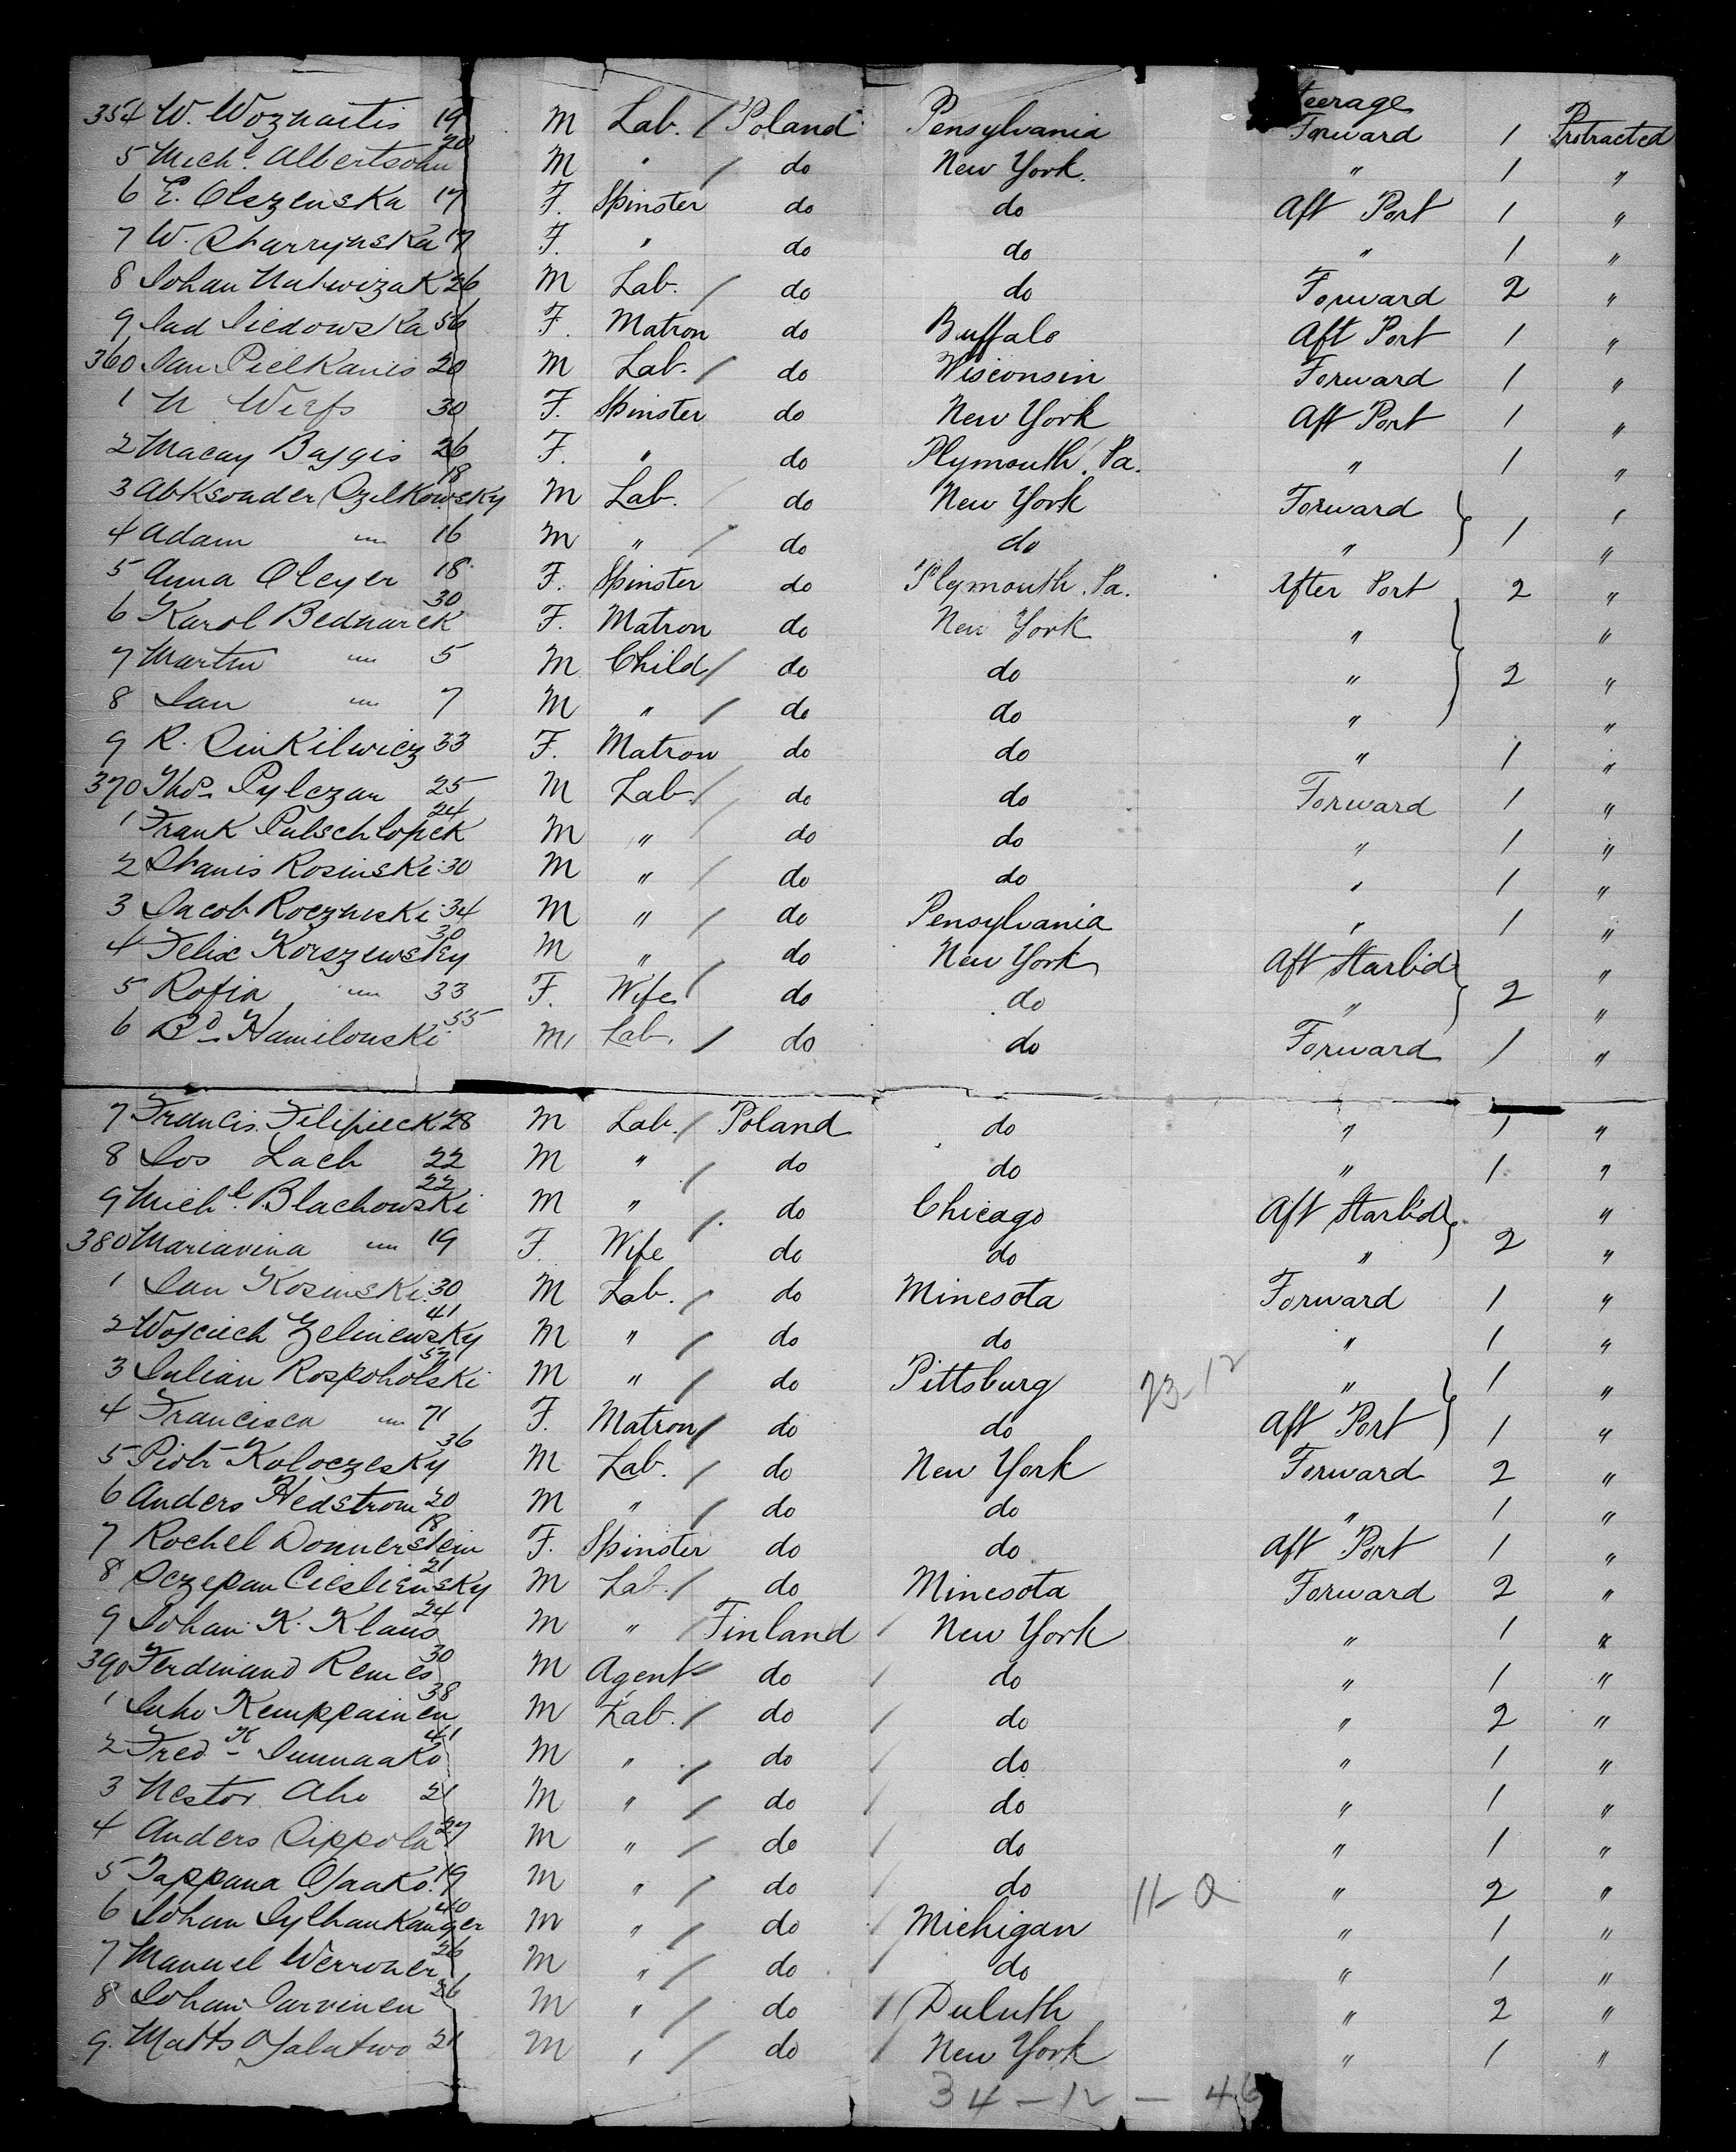 Steerage
354 W. Woznaitis 19 M Lab. / Poland Pensylvania Forward 1 Protracted
5 Michl. Albertsohn 20 M " / do New York. " 1 "
6 E. Olszenska 17 F. Spinster do do Aft Port 1 "
7 W. Starrynska 17 F. " do do " 1 "
8 Johan 26 M Lab. / do do Forward 2 "
9 Jad Siedowska 56 F. Matron do Buffalo Aft Port 1 "
360 Jan Pielkanis 20 M Lab. / do Wisconsin Forward 1 "
1 N 30 F. Spinster do New York Aft Port 1 "
2 Macay Bajgis 26 F. " do Plymouth. Pa. " 1 "
3 Abksander Czelkowsky 18 M Lab. / do New York Forward } "
4 Adam " 16 M " / do do " } 1 "
5 Anna Oleyer 18 F. Spinster do Plymouth. Pa. After Port 2 "
6 Karol Bednarek 30 F. Matron do New York " } "
7 Martin " 5 M Child / do do " } 2 "
8 Jan " 7 M " / do do " } "
9 R. Sinkilwicz 33 F. Matron do do " 1 "
370 Thos. Pylczan 25 M Lab. / do do Forward 1 "
1 Frank Pulschlopek 24 M " / do do " 1 "
2 Stanis Rosinski 30 M " / do do " 1 "
3 Jacob Roczynski 34 M " / do Pensylvania " 1 "
4 Felix Korszewsky 30 M " / do New York Aft Starb'd } "
5 Rofia " 33 F. Wife / do do " } 2 "
6 Rd. Hamilouski 55 M Lab. / do do Forward 1 "
7 Francis. Filipieck 28 M Lab. / Poland do " 1 "
8 Jos Lach 22 M " / do do " 1 "
9 Michl. Blachowski 22 M " / do Chicago Aft Starb'd } "
380 Mariavina " 19 F. Wife do do " } 2 "
1 Jan Kosinski 30 M Lab. / do Minesota Forward 1 "
2 Wojciech Zeliniewsky 41 M " / do do " 1 "
3 Julian Rospoholski 57 M " / do Pittsburg 73-12 " } 1 "
4 Francisca " 71 F. Matron / do do Aft Port } 1 "
5 Piotr Koloczesky 36 M Lab. / do New York Forward 2 "
6 Anders Hedstrom 20 M " / do do " 1 "
7 Rochel Donnerstein 18 F. Spinster do do Aft Port 1 "
8 Sczepan Ciesliensky 21 M Lab. / do Minesota Forward 2 "
9 Johan K. Klaus 24 M " / Finland / New York " 1 "
390 Ferdinand Remes 30 M Agent do / do " 1 "
1 Juho Kemppainen 38 M Lab. / do / do " 2 "
2 Fredk. 41 M " / do do " 1 "
3 Nestor Aho 21 M " / do / do " 1 "
4 Anders Sippola 27 M " / do / do " 1 "
5 Tappana Ojaako. 19 M " / do / do 11-0 " 2 "
6 Johan Sylhankanger 40 M " / do / Michigan " 1 "
7 Manuel Werroner 26 M " / do / do " 1 "
8 Johan Jarvinen 26 M " / do / Duluth " 2 "
9. Matts Ojalatwo 21 M " / do / New York " 1 "
34-12-46